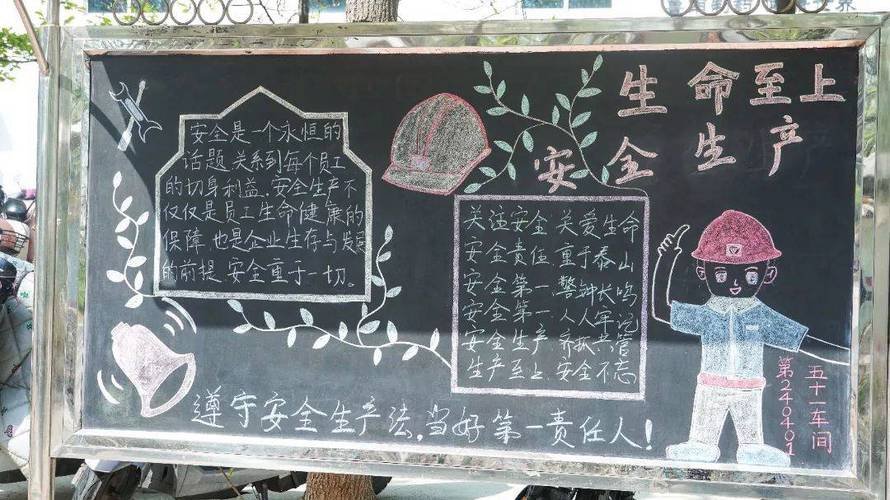 生命至上
安全生产
安全是一个永恒的
话题,关系到每个员工
的切身利益.安全生产不
仅仅是员工生命健康的
保障,也是企业生存与发展
的前提,安全重于一切。
关注安全 关爱生命
安全责任 重于泰山
安全第一 警钟长鸣
安全第一 人人牢记
安全生产 齐抓共管
生产至上 安全不忘
五十一车间
第240401
遵守安全生产法,当好第一责任人!